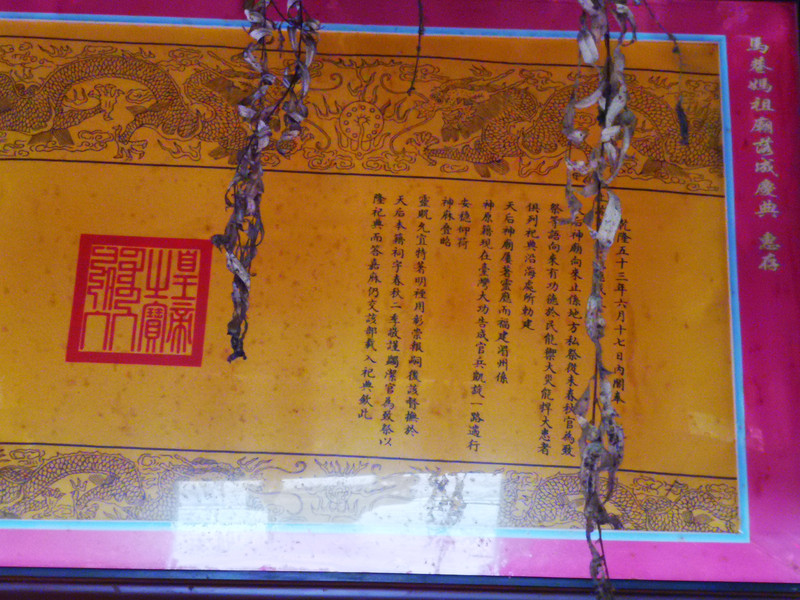 馬巷媽祖廟落成慶典 惠存
乾隆五十三年六月十七日內閣奉
后神廟向來止係地方私祭從未春秋官為致
祭等語向來有功德於民能禦大災能捍大患者
俱列祀典沿海處所勅建
天后神廟屢著靈應而福建湄州係
神原籍現在臺灣大功告成官兵凱旋一路遄行
安穩仰荷
神庥疊昭
靈貺允宜特著明禋用彰崇報嗣後該督撫於
天后本籍祠宇春秋二季敬謹蠲潔官為致祭以
隆祀典而答嘉庥仍交該部載入祀典欽此
皇帝之寶